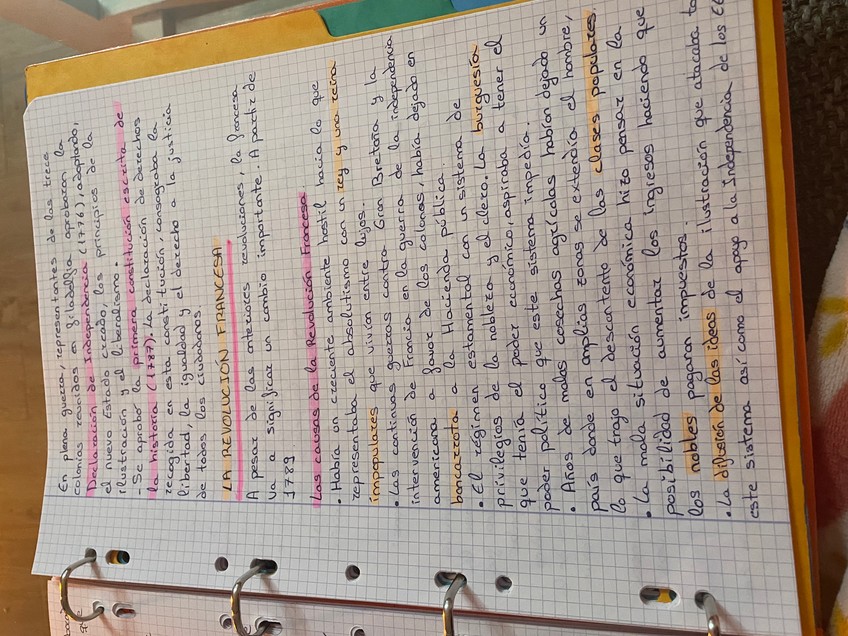 En plena guerra, representantes de las trece
colonias reunidos en filadelfia aprobaron la
Declaración de Independencia (1776), adoptando,
el nuevo Estado creado, los principios de la
ilustración y el liberalismo.
- Se aprobó la primera constitución escrita de
la historia (1787). La declaración de Derechos
recogida en esta constitución, consagraba la
libertad, la igualdad y el derecho a la justicia
de todos los ciudadanos.
LA REVOLUCIÓN FRANCESA
A pesar de las anteriores revoluciones, la francesa
va a significar un cambio importante. A partir de
1789
Las causas de la Revolución Francesa
• Había un creciente ambiente hostil hacia lo que
representaba el absolutismo con un rey y una reina
impopulares que vivían entre lujos.
• Las continuas guerras contra Gran Bretaña y la
intervención de Francia en la guerra de la independencia
americana a favor de los colonos, había dejado en
bancarrota a la Hacienda pública.
• El régimen estamental con un sistema de
privilegios de la nobleza y el clero. La burguesía
que tenía el poder económico, aspiraba a tener el
poder político que este sistema impedía.
• Años de malas cosechas agrícolas habían dejado un
país donde en amplias zonas se extendía el hambre,
lo que trajo el descontento de las clases populares.
• La mala situación económica hizo pensar en la
posibilidad de aumentar los ingresos haciendo que
los nobles pagaran impuestos.
• La difusión de las ideas de la ilustración que atacaba to
este sistema así como el apoyo a la Independencia de los EE